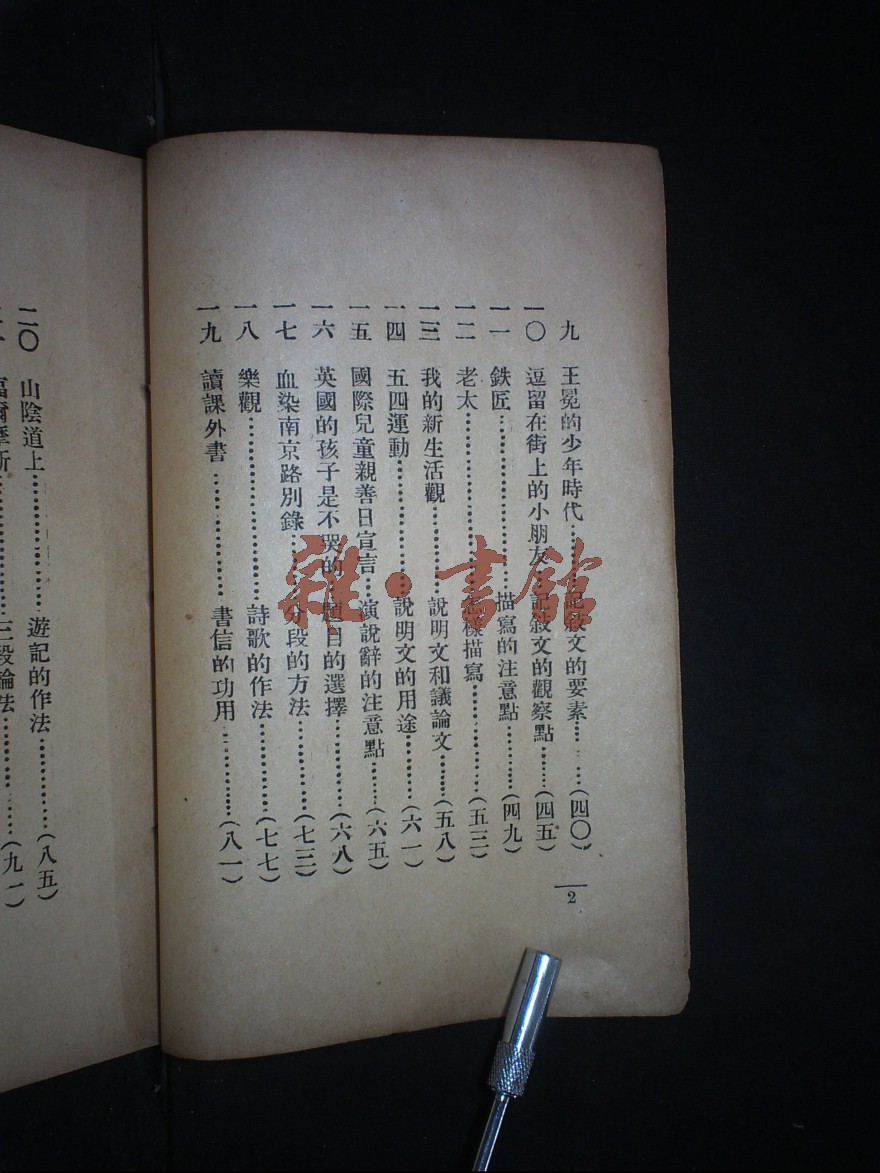 九 王冕的少年時代……記敍文的要素……(四〇)
一〇 逗留在街上的小朋友…記敍文的觀察點……(四五)
一一 鉄匠……描寫的注意點……(四九)
一二 老太……怎樣描寫……(五三)
一三 我的新生活觀……說明文和議論文……(五八)
一四 五四運動……說明文的用途……(六一)
一五 國際兒童親善日宣言…演說辭的注意點……(六五)
一六 英國的孩子是不哭的…題目的選擇……(六八)
一七 血染南京路別錄……分段的方法……(七三)
一八 樂觀……詩歌的作法……(七七)
一九 讀課外書……書信的功用……(八一)
2
二〇 山陰道上……遊記的作法……(八五)
福爾摩斯……三段論法……(九一)
雜·書館